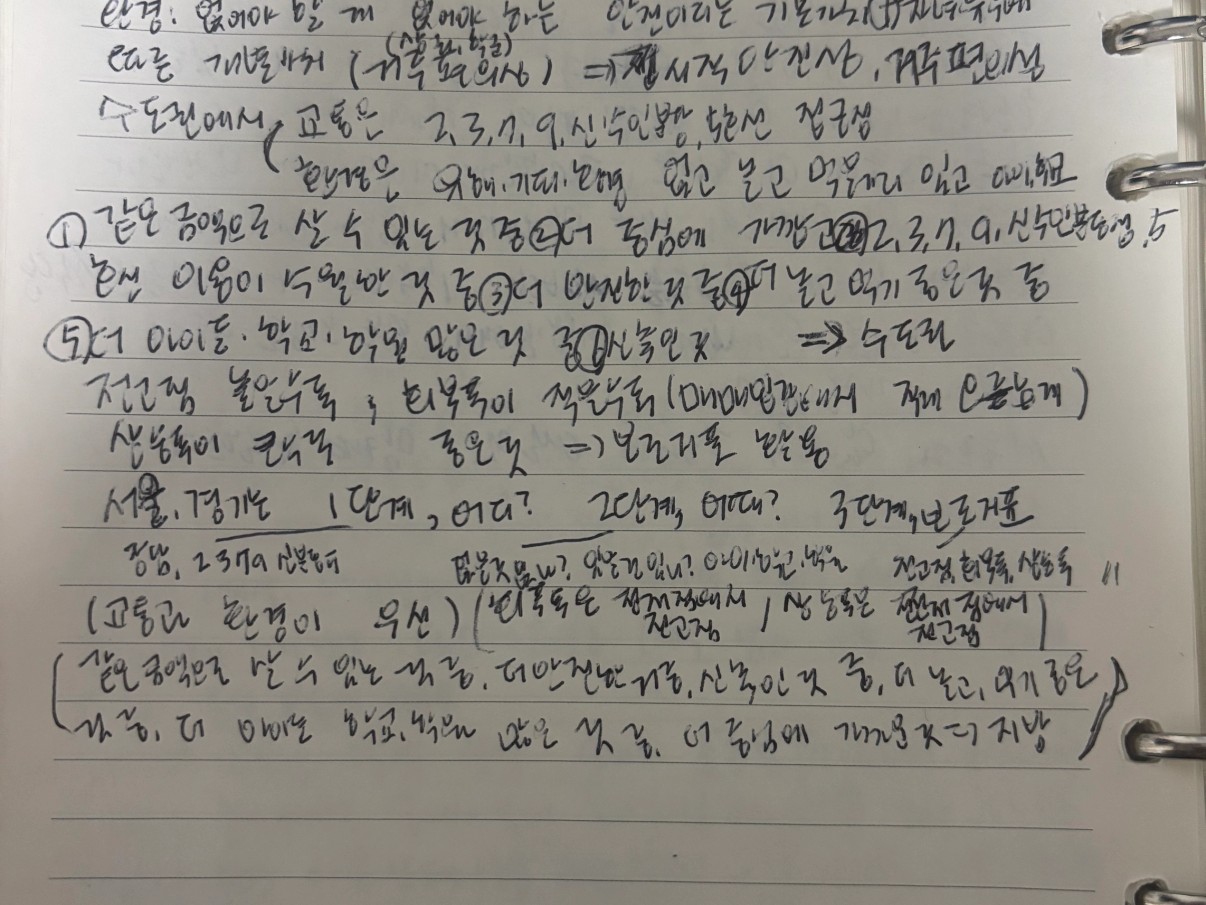 환경: 없어야 할 게 없어야 하는 안전이라는 기본가치(+)자녀유무에
따른 개별가치 (거주편의성) (상권, 학군) ⇒ 시각 안전상, 거주편의성
수도권에서 교통은 2,3,7,9,신, 수인분당, 5호선 접근성
환경은 유해·기피·환경 없고 놀고 먹을거리 있고 아이,학교
① 같은 금액으로 살 수 있는 것 중 ② 더 중심에 가깝고 2,3,7,9,신수인분당, 5
호선 이용이 수월한 것 중 ③ 더 안전한 것 중 ④ 더 놀고 먹기 좋은 것 중
⑤ 더 아이들·학교·학원 많은 것 중 신축인 것 ⇒ 수도권
전고점 높을수록, 회복폭이 적을수록 (매매입장에서 적게 오른게)
상승폭이 클수록 좋은 것 ⇒ 보조지표 활용
서울, 경기는 1단계, 어디? 2단계, 어때? 3단계, 보조지표
강남, 2379 신분당 없을것 없나? 있을건 있나? 아이,학교,학원 전고점, 회복폭, 상승폭 "
(교통과 환경이 우선) (회복폭은 현재점에서 전고점 / 상승폭은 전전저점에서 전고점)
(같은 금액으로 살 수 있는 것 중, 더 안전한 거 중, 신축인 것 중, 더 놀고, 먹기 좋은
것 중, 더 아이들 학교, 학원 많은 것 중, 더 중심에 가까운 것 ⇒ 지방)